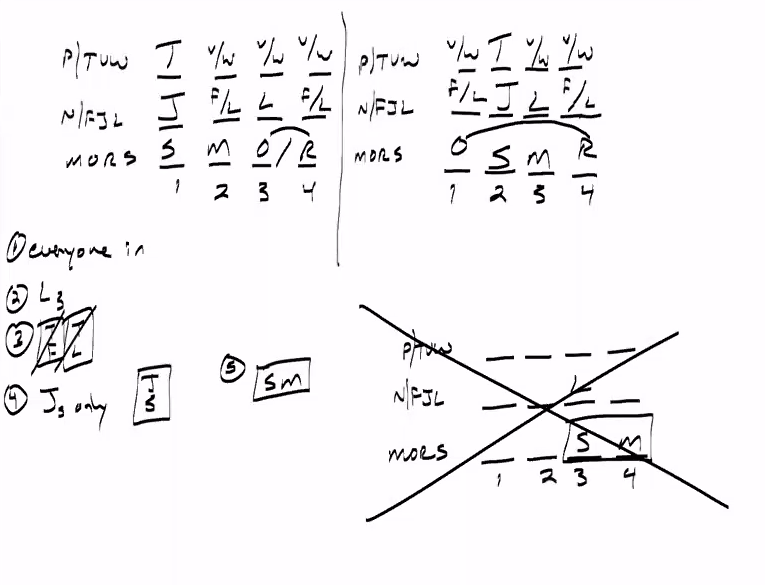 P/TUW T V/W V/W V/W
N/FJL J F/L L F/L
MORS S M O/R
1 2 3 4
P/TUW V/W T V/W V/W
N/FJL F/L J L F/L
MORS O S M R
1 2 3 4
① everyone in
② L3
③
④ Js only J S
⑤ SM
P/TUW
N/FJL L
MORS S M
1 2 3 4